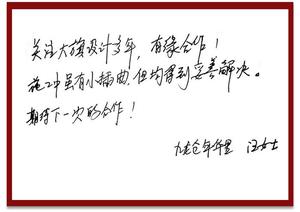 关注大旗设计多年，有缘合作！
施工中虽有小插曲，但均得到妥善解决。
期待下一次的合作！
九龙仓年华里 汪女士